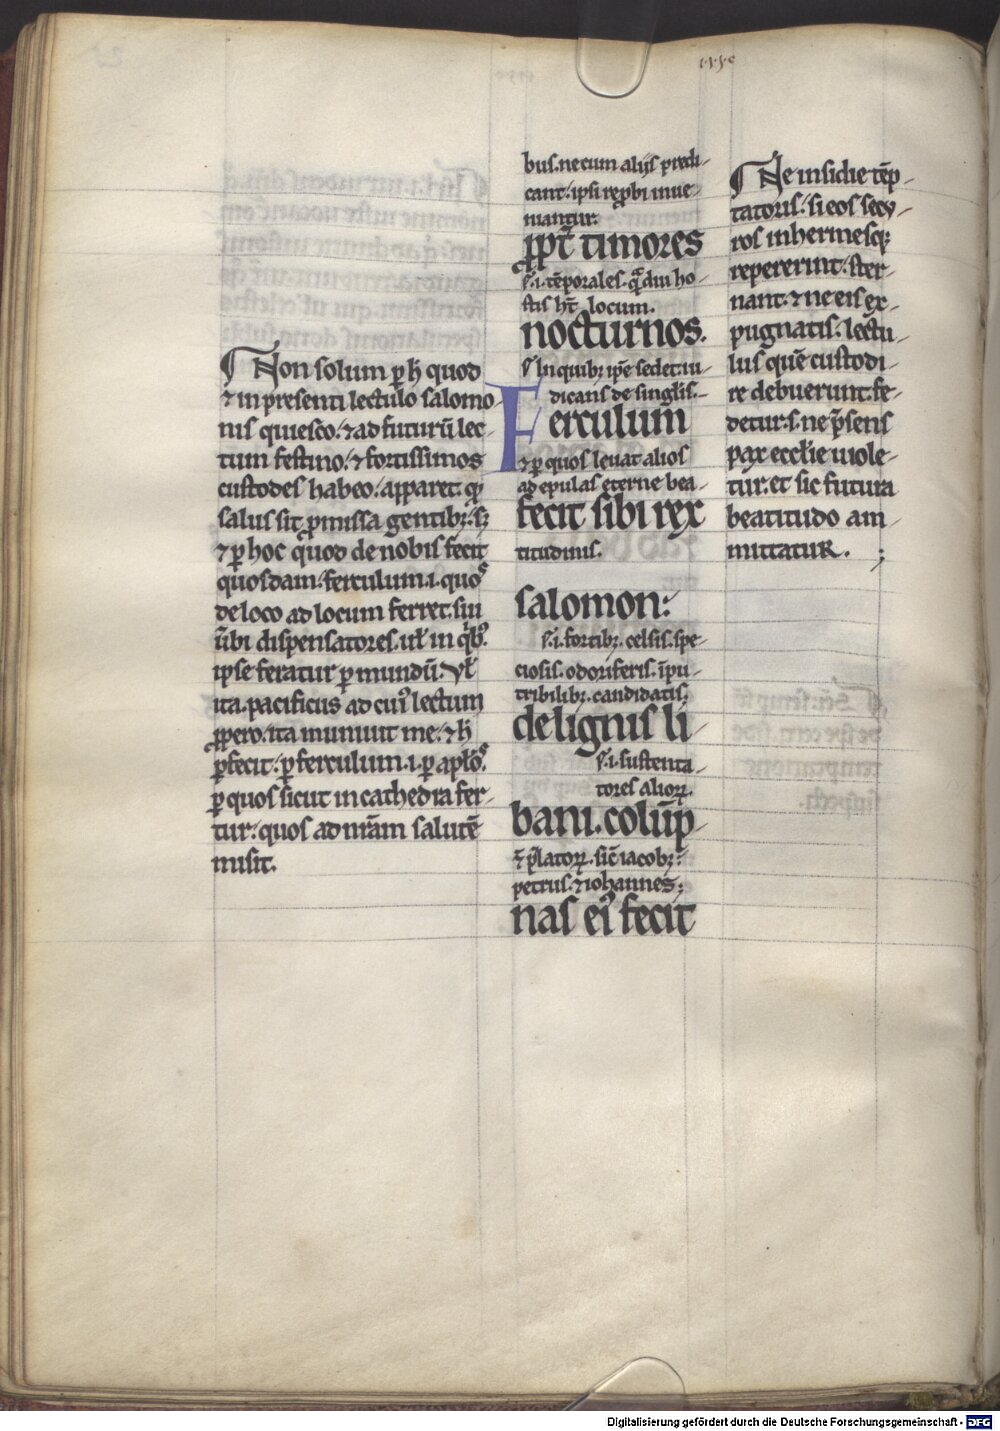 ¶ Non solum ꝑ h̄ quod
⁊ in presenti lectulo salomo-
nis quiesco.⁊ ad futurū lec-
tum festino.⁊ fortissimos
custodes habeo. apparet. qd̄
salus sit ꝓmissa gentibꝫ. sꝫ
⁊ ꝑ hoc quod de nobis fecit
quosdam. ferculum .i. quos
de loco ad locum ferret. sui
ūbi dispensatores. ul̄ in qͥbꝰ
ipse feratur ꝑ mundū. Vl̄
ita. pacificus ad cuiꝰ lectum
ꝓpero. ita muniuit me. ⁊ h̄
ꝑfecit. ꝑ ferculum .i. ꝑ apl̄os.
ꝑ quos sicut in cathedra fer-
tur. quos ad nr̄am salutē
misit.
bus. ne cum alijs predi-
cant. ipsi reꝓbi inue-
niantur.
ꝓpt̄ timores
s̄.i. tēporales. qͣmdiu ho-
stis hт̄ locum.
nocturnos.
s̄ In quibꝫ ip̄e sedet. iu-
dicans de singl̄is.
Ferculum
⁊ ꝑ quos leuat alios
ad epulas eterne bea-
fecit sibi rex
titudinis.
salomon:
s̄.i. fortibꝫ. celsis. spe-
ciosis. odoriferis. īpu-
tribilibꝫ. candidatis;
de lignis li-
s̄.i. sustenta-
tores alioꝝ.
bani. colūp-
⁊ p̄latoꝝ. sic̄ iacobꝫ.
petrus. ⁊ iohannes;
nas eiꝰ fecit
¶ Ne insidie tēp-
tatoris. si eos secu-
ros inhermesqꝫ
repererint. ster-
nant. ⁊ ne eis ex-
pugnatis. lectu-
lus quē custodi-
re debuerunt. fe-
detur .s. ne p̄sens
pax eccl̄ie uiole-
tur. et sic futura
beatitudo am-
mittatur. ;
Digitalisierung gefördert durch die Deutsche Forschungsgemeinschaft - DFG